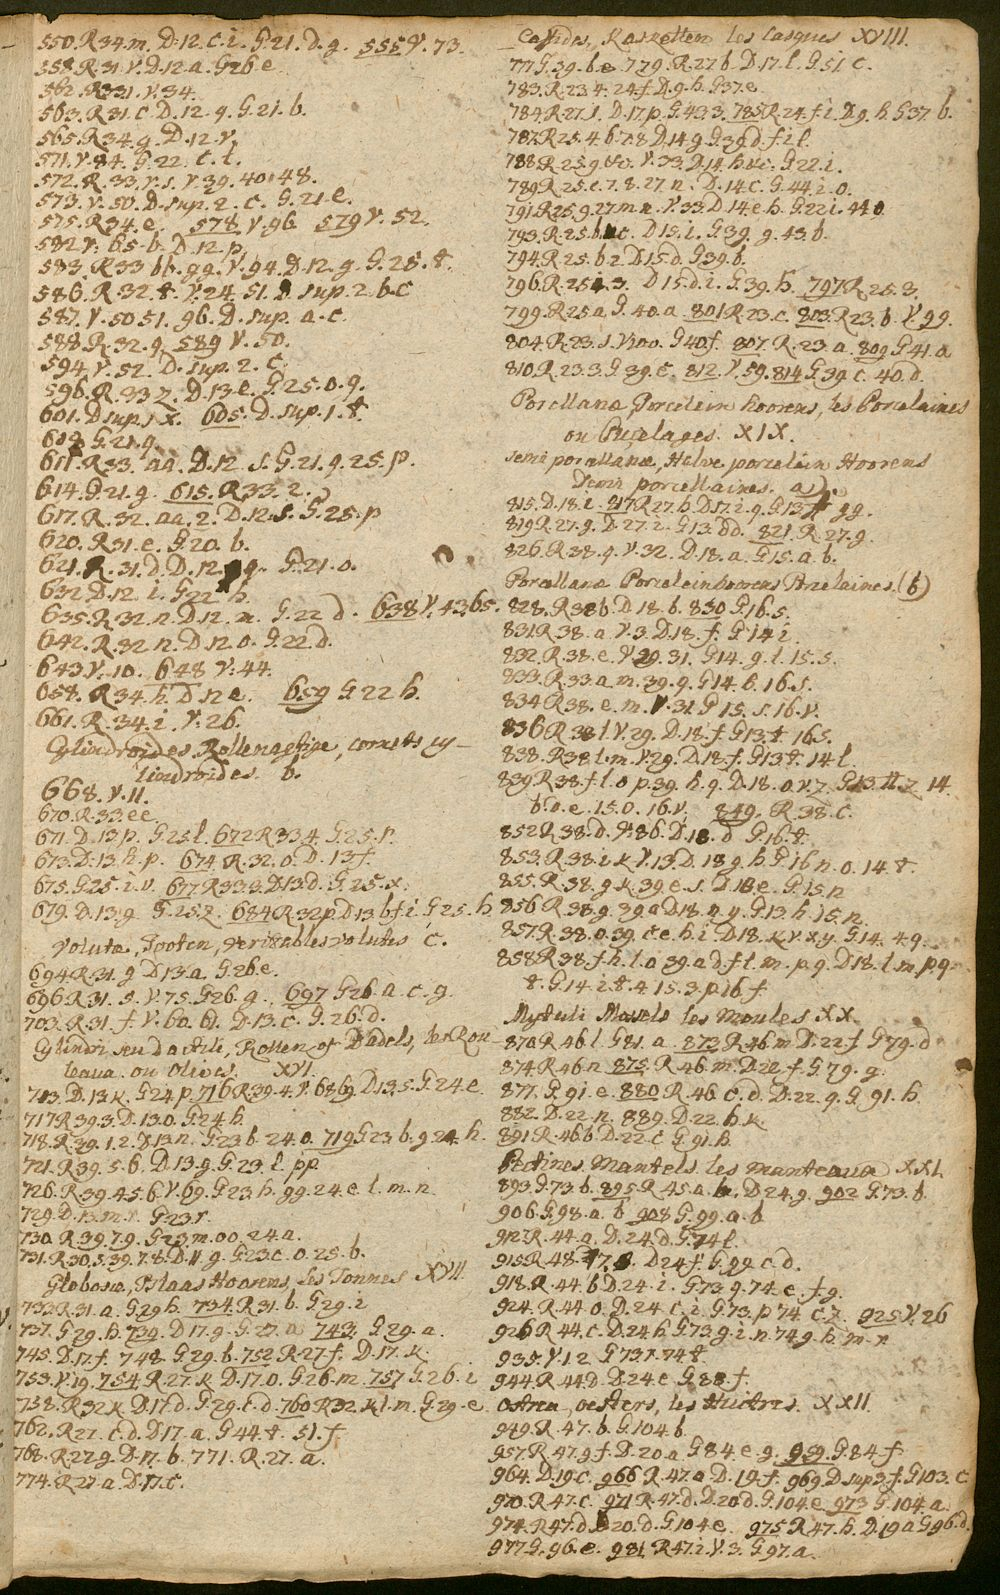 550. R 34. m. D. 12. c. i. G. 21. D. g. 555 V. 73.
558. R. 31 V. D. 12 a. G 26 e.
562. R 331. V. 34.
563. R 31. c D. 12. g. G. 21. b.
565. R 34. g. D. 12. v.
571. V. 84. G. 22. c. t.
572. R. 33. r. s. V. 39. 40. 48.
573. V. 50. D. sup. 2. c. G. 21. e.
575. R 34. e. 578. V. 96 579 V. 52.
582 V. 65. b. D. 12 p.
583. R 33 bb. gg. V. 94. D. 12. g. G. 25. t.
586. R. 32. t. V. 24. 51. D sup. 2. b. c
587. V. 50 51. 96. D. sup. a. c.
588. R. 32. q. 589 V. 50.
594. V. 52. D. sup. 2. c.
596. R 33 z. D. 13 e. G. 25. o. q.
601. D sup. 1 x. 605. D. sup. 1. t.
608 G. 21. q.
611. R 33. aa. D. 12. s. G. 21. q. 25. p.
614. G. 21. g. 615. R 33. 2.
617. R. 32. aa. 2. D. 12. s. G. 25. p
620. R 31. e. G. 20. b.
621. R. 31. d. D. 12. g. G. 21. o.
632 D. 12. i. G 22 h.
635. R 32. n. D. 12. m. G. 22 d. 638 V. 43. 65.
642. R. 32 n. D 12 o. G. 22 d.
643 V. 10. 648 V. 44.
658. R 34. h. D 12 e. 659 G 22 h.
661. R. 34. i. V. 26.
Cylindroides. Rollenagtige, cornets cy-
lindroides. b.
668. V. 11.
670. R. 33. ee.
671. D. 13. p. G 25 l. 672 R 33 4. G 25. r.
673. D. 13 h. p. 674 R. 32. o. D. 13 f.
675. G 25. i. v. 677 R 33 3. D 13 d. G. 25. x.
679. D. 13. g G. 25 z. 684 R 32 p. D 13 b. f. i. G 25. h.
Voluta, Tooten, veritables volutes c.
694 R 31. g D 13. a. G. 26. e.
696 R 31. s. V. 75. G 26. g. 697 G 26 a. c. g.
703. R. 31. f. V. 60. 61. D. 13. c. G. 26. d.
Cylindri seu dactili, Rollen of Dadels, les Rou-
leaux ou olives. XVI.
713. D. 13 k. G 24 p. 716 R 39. 4. V. 68 69. D 13. 5. G. 24 e.
717 R 39 3. D. 13 o. G. 24 h.
718. R. 39. 1. 2. D 13 n. G 23 b. 24. o. 719 G 23 b. g 24. h.
721. R 39. 5. 6. D. 13. g. G. 23. l. pp
726. R 39. 4 5. 6. V. 69. G 23 h. gg. 24. e. l. m. n.
729. D. 13. m. r. G 23. r.
730. R. 39. 7. 9. G 23 m. oo. 24. a.
731. R 30. 5. 39. 7. 8. D. 11. g. G 23 c. o. 25. b.
Globosæ, Blaas Hoorens, les Tonnes XVII.
733 R 31. a. G. 29 h. 734. R 31. b. G 29. i
737. G 29. h. 739. D 17. g. G. 27. a 743. G. 29. a.
745. D. 17. f. 748. G. 29. b. 752 R. 27 f. D. 17. k.
753. V. 19. 754. R 27. k. D. 17. o. G 26. m. 757 G. 26. i
758. R 32 k D 17. d. G. 29. c. d. 760 R 32. k l. m. G. 29. e.
762. R 27. c. d. D 17. a. G 44. t. 51. f.
768. R 27 g. D. 17. b. 771. R. 27. a.
774. R 27. a. D. 17. c.
Cassides, Kasketten les Casques XVIII.
777 G. 39. b. e 779. R. 27 b. D. 17. l. G 51 c.
783. R. 23 4. 24 f. D. g. h. G 37. e.
784 R. 27. s. D. 17. p. G. 43 3. 785 R 24. f. i. D g. h. G 37. b.
787 R 25. 4. b. 7. 8. D 14 g. G 39 d. f. i. l.
788 R 25 g. &c. V. 33. D. 14. h. &c. G 22. i.
789 R 25. e. 7. 8. 27. n. D. 14 c. G. 44. i. o.
791 R 25. g. 27 m. n. V. 33. D 14 e. h. G. 22 i. 44 o.
793. R. 25. b. c. D 15. i. G 39. g. 43. b.
794. R 25. b 2. D 15. d. G 39. b.
796. R. 25 4. 3. D 15. d. i. G. 39. h. 797 R. 25. 3.
799. R 25 a G. 40. a. 801 R 23. c. 803. R 23. b. V. 99.
804. R. 23. s. V. 100. G 40 f. 807. R. 23. a. 809 G 41. a
810. R. 23. 3 G 39. c. 812. V. 59. 814 G 39 c. 40. d.
Porcellanæ, Porcelein hoorens, les Porcelaines
ou Pucelages. XIX.
Semi porcellanæ, Halve porcelein Hoorens
Demi porcellaines. a).
815. D. 18. i. 817 R 27. h. D 17. i. q. G 13 gg.
819 R. 27. g. D. 27. i. G 13. dd. 821. R. 27. g.
826. R. 28. q. V. 32. D. 18. a. G 15. a. b.
Porcellanæ Porcelein hoorens Porcelaines. (b)
828. R 38 b. D 18. b. 830 G 16. 5.
831. R 38. a V. 3. D. 18. f. G 14 i
832. R. 38. e. V 29. 31. G 14. g. l. 15. 5.
833. R. 33. a. m. 39. q. G 14. b. 16. s.
834 R 38. e. m. V. 31. G 15. s. 16. v.
836 R 38 l. V. 29. D. 18. f. G 13. t. 16. 5.
838. R 38 l. m. V. 29. D. 18. f. G 13 t. 14 l.
839 R 38. f. l. o p. 39. h. q. D. 18. o. v. 7. G 13. tt. z. 14.
b. o. e. 15. o. 16. v. 849. R. 38. c.
852 R 38. d. V. 86. D. 18. d G 16. t.
853. R 38. i k V. 13. D. 18 g. h. G 16 n. o. 14. t.
855. R. 38. g k. 39 e. s. D. 18 e. G. 15. n
856 R 38. g. 39 a D 18. n. y. G 13. h. 15. n.
857. R 38. o. 39. c. e. h. i. D 18. k. v. x. y. G 14. 4. q.
858 R 38 f. h. l. o 39. a d. f. l. m. p. q. D. 18. l. m. p q.
t. G 14. i. t. 4. 15. 3. p 16. f.
Mytuli Mossels les moules XX.
870 R 46 l. G 81. a. 873 R 46. m D. 22 f. G 79. d.
874 R 46. n 875. R. 46. m. D. 22. f. G. 79. g.
877. G. 91. e. 880 R. 46. c. d. D. 22. q. G. 91. h.
882. D. 22. n. 889. D. 22. h. k.
891 R. 46 b D. 22. c G. 91. h
Pectines. Mantels. les manteaux XXI.
893. G. 73. b. 895 R. 45. a. b. D. 24. g. 902 G. 73. b.
906. G. 98. a. b 908 G. 99. a. b
912 R. 44. a. D. 24. d. G. 74 l.
915 R 48. 17. D 24 f. G 99 c. d.
918. R. 44. b D. 24. i. G 73. g. 74. e. f. g.
924. R. 44 o. D. 24. c. i. G. 73. p 74. c. z. 925 V. 26
926 R 44. c. D. 24 h G 73. g. i. n. 74 g. h. m. r.
939. V. 1. 2. G 73. r. 74. t.
944. R. 44 D. D. 24. e. G. 88. f.
Ostrea, oesters, les Huitres. XXII.
949. R. 47. b. G 104. b.
957. R 47. g f. D. 20. a G 84. e. g. 959. G. 84. f.
964. D. 19 c. 966 R. 47. a D. 19. f. 969. D sup 3. f. G 103. c
970. R. 47. c. 971 R. 47. d. D. 20 d. G. 104. e. 973 G. 104. a.
974. R 47. d. D 20. d. G. 104 e. 975 R 47. h. D. 19 a G 96. d.
977 G. 96. e. 981 R 47. i. V. 3. G 97. a.